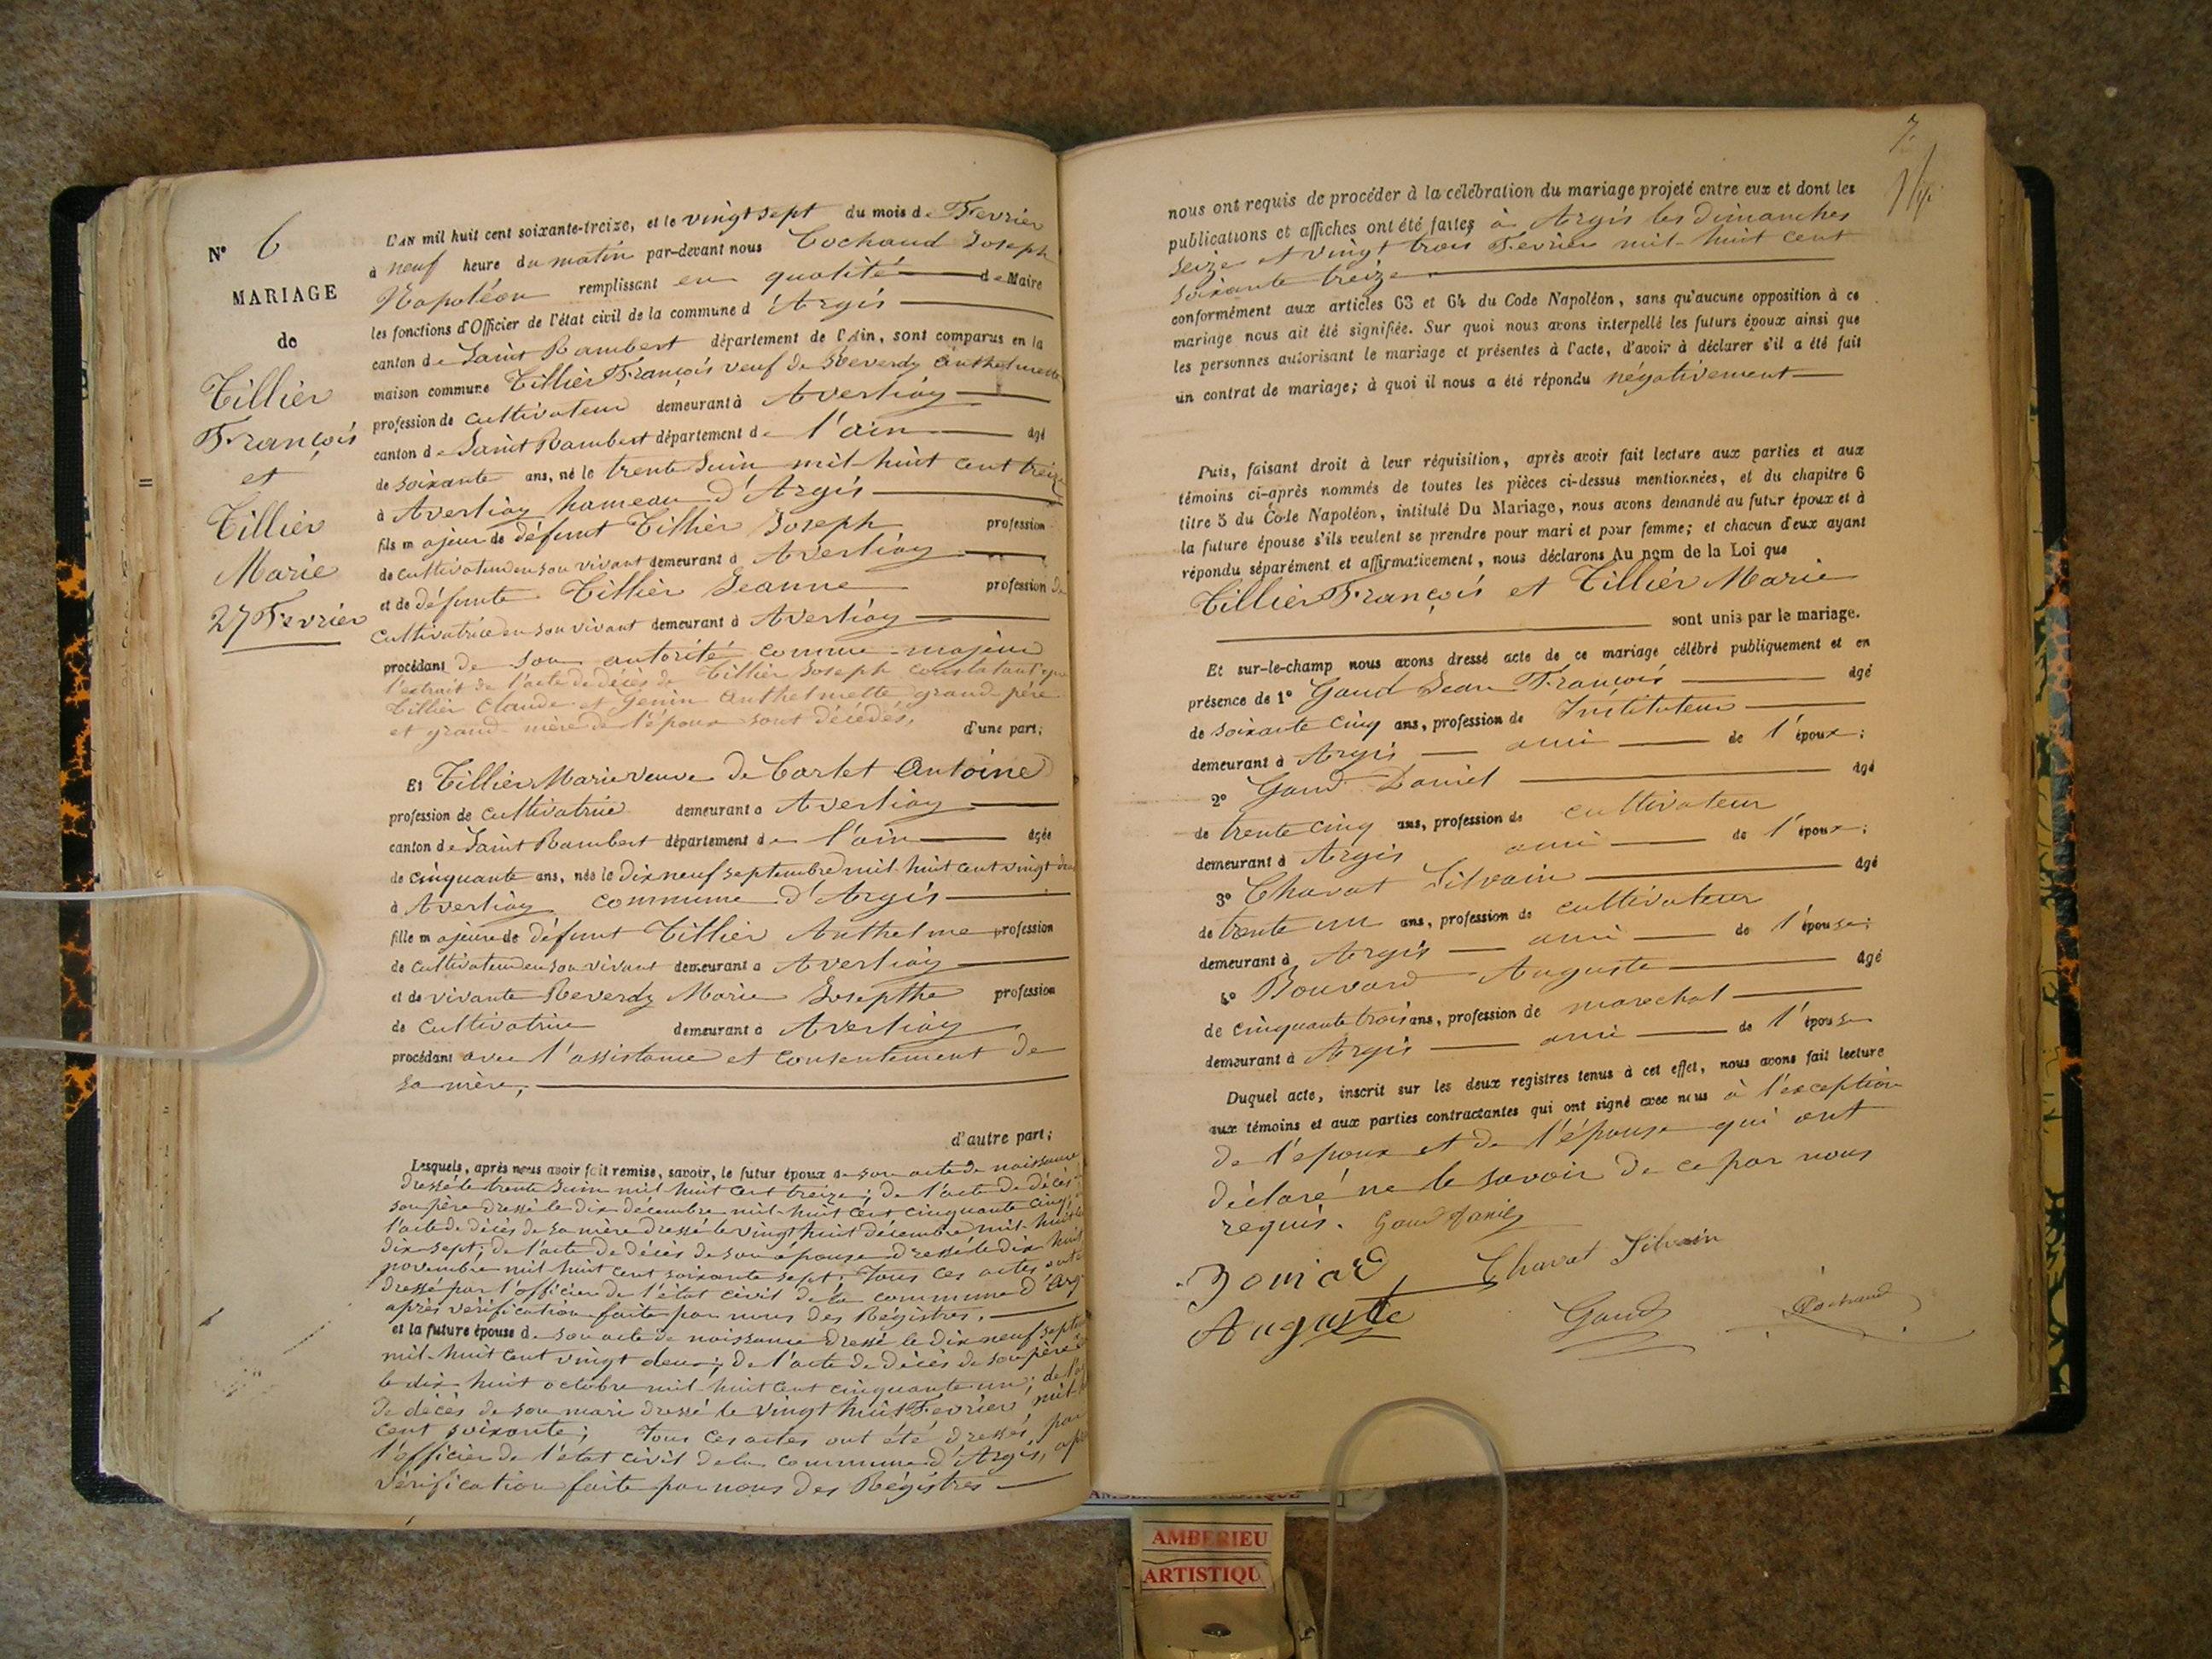 N° 6
MARIAGE
de
Tillier
François
et
Tillier
Marie
27 Fevrier
L'AN mil huit cent soixante-treize, et le vingt sept du mois de Fevrier
à neuf heure du matin par-devant nous Cochaud Joseph
Napoléon remplissant en qualité de Maire
les fonctions d'Officier de l'état civil de la commune d'Argis
canton de Saint Rambert département de l'Ain, sont comparus en la
maison commune Tillier François veuf de Reverdy Anthelmette
profession de cultivateur demeurant à Averliay
canton de Saint Rambert département de l'ain âgé
de soixante ans, né le trente Juin mil huit cent treize
à Averliay hameau d'Argis
fils majeur de défunt Tillier Joseph profession
de cultivateur en son vivant demeurant à Averliay
et de défunte Tillier Jeanne profession de
cultivatrice en son vivant demeurant à Averliay
procédant de son autorité comme majeur
l'extrait de l'acte de décès de Tillier Joseph constatant que
Tillier Claude et Genin Anthelmette grand père
et grand-mère de l'époux sont décédés,
d'une part;
Et Tillier Marie veuve de Carlet Antoine
profession de cultivatrice demeurant à Averliay
canton de Saint Rambert département de l'ain âgée
de cinquante ans, née le dix neuf septembre mil huit cent vingt deux
à Averliay commune d'Argis
fille majeure de défunt Tillier Anthelme profession
de cultivateur en son vivant demeurant à Averliay
et de vivante Reverdy Marie Josepthe profession
de cultivatrice demeurant à Averliay
procédant avec l'assistance et consentement de
sa mère,
d'autre part;
Lesquels, après nous avoir fait remise, savoir, le futur époux de son acte de naissance
dressé le trente Juin mil huit cent treize; de l'acte de décès
son père dressé le dix décembre mil huit cent cinquante cinq;
l'acte de décès de sa mère dressé le vingt huit décembre mil huit
dix sept; de l'acte de décès de son épouse dressé le dix huit
novembre mil huit cent soixante sept; Tous ces actes
dressé par l'officier de l'état civil de la commune d'Arg
après vérification faite par nous des Régistres.
et la future épouse de son acte de naissance dressé le dix neuf sept
mil huit cent vingt deux; de l'acte de décès de son père
le dix huit octobre mil huit cent cinquante un; de l'a
de décès de son mari dressé le vingt huit Fevrier mil
cent soixante; Tous ces actes ont été dressés par
l'officier de l'état civil de la commune d'Argis, ap
vérification faite par nous des Régistres
7.
nous ont requis de procéder à la célébration du mariage projeté entre eux et dont les
publications et affiches ont été faites à Argis les dimanches
seize et vingt trois Fevrier mil huit cent
soixante treize
conformément aux articles 63 et 64 du Code Napoléon, sans qu'aucune opposition à ce
mariage nous ait été signifiée. Sur quoi nous avons interpellé les futurs époux ainsi que
les personnes autorisant le mariage et présentes à l'acte, d'avoir à déclarer s'il a été fait
un contrat de mariage; à quoi il nous a été répondu négativement
Puis, faisant droit à leur réquisition, après avoir fait lecture aux parties et aux
témoins ci-après nommés de toutes les pièces ci-dessus mentionnées, et du chapitre 6
titre 5 du Code Napoléon, intitulé Du Mariage, nous avons demandé au futur époux et à
la future épouse s'ils veulent se prendre pour mari et pour femme; et chacun d'eux ayant
répondu séparément et affirmativement, nous déclarons Au nom de la Loi que
Tillier François et Tillier Marie
sont unis par le mariage.
Et sur-le-champ nous avons dressé acte de ce mariage célébré publiquement et en
présence de 1° Gaud Jean François âgé
de soixante cinq ans, profession de Instituteur
demeurant à Argis ami de l'époux;
2° Gaud Daniel âgé
de trente cinq ans, profession de cultivateur
demeurant à Argis ami de l'époux;
3° Chavat Silvain âgé
de trente un ans, profession de cultivateur
demeurant à Argis ami de l'épouse;
4° Bouvard Auguste âgé
de cinquante trois ans, profession de marechal
demeurant à Argis ami de l'épouse
Duquel acte, inscrit sur les deux registres tenus à cet effet, nous avons fait lecture
aux témoins et aux parties contractantes qui ont signé avec nous à l'exception
de l'époux et de l'épouse qui ont
déclaré ne le savoir de ce par nous
requis. Gaud Daniel
Chavat Silvain
Auguste Gaud Cochaud
AMBERIEU
ARTISTIQU